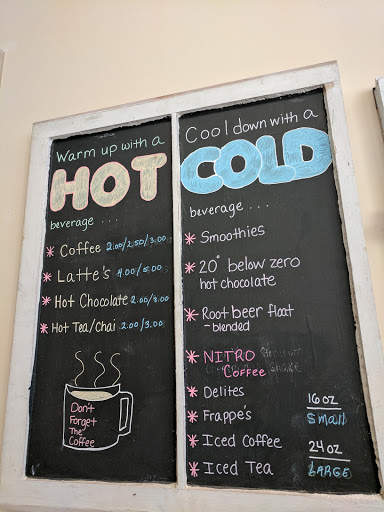 Warm up with a
HOT
beverage . . .
* Coffee 2.00/2.50/3.00
* Latte's 4.00/5.00
* Hot Chocolate 2.00/3.00
* Hot Tea/Chai 2.00/3.00
Don't
Forget
The
Coffee
Cool down with a
COLD
beverage . . .
* Smoothies
* 20° below zero
hot chocolate
* Root beer float
- blended
* NITRO
Coffee
* Delites
* Frappe's
* Iced Coffee
* Iced Tea
16 oz
Small
24 oz
LARGE